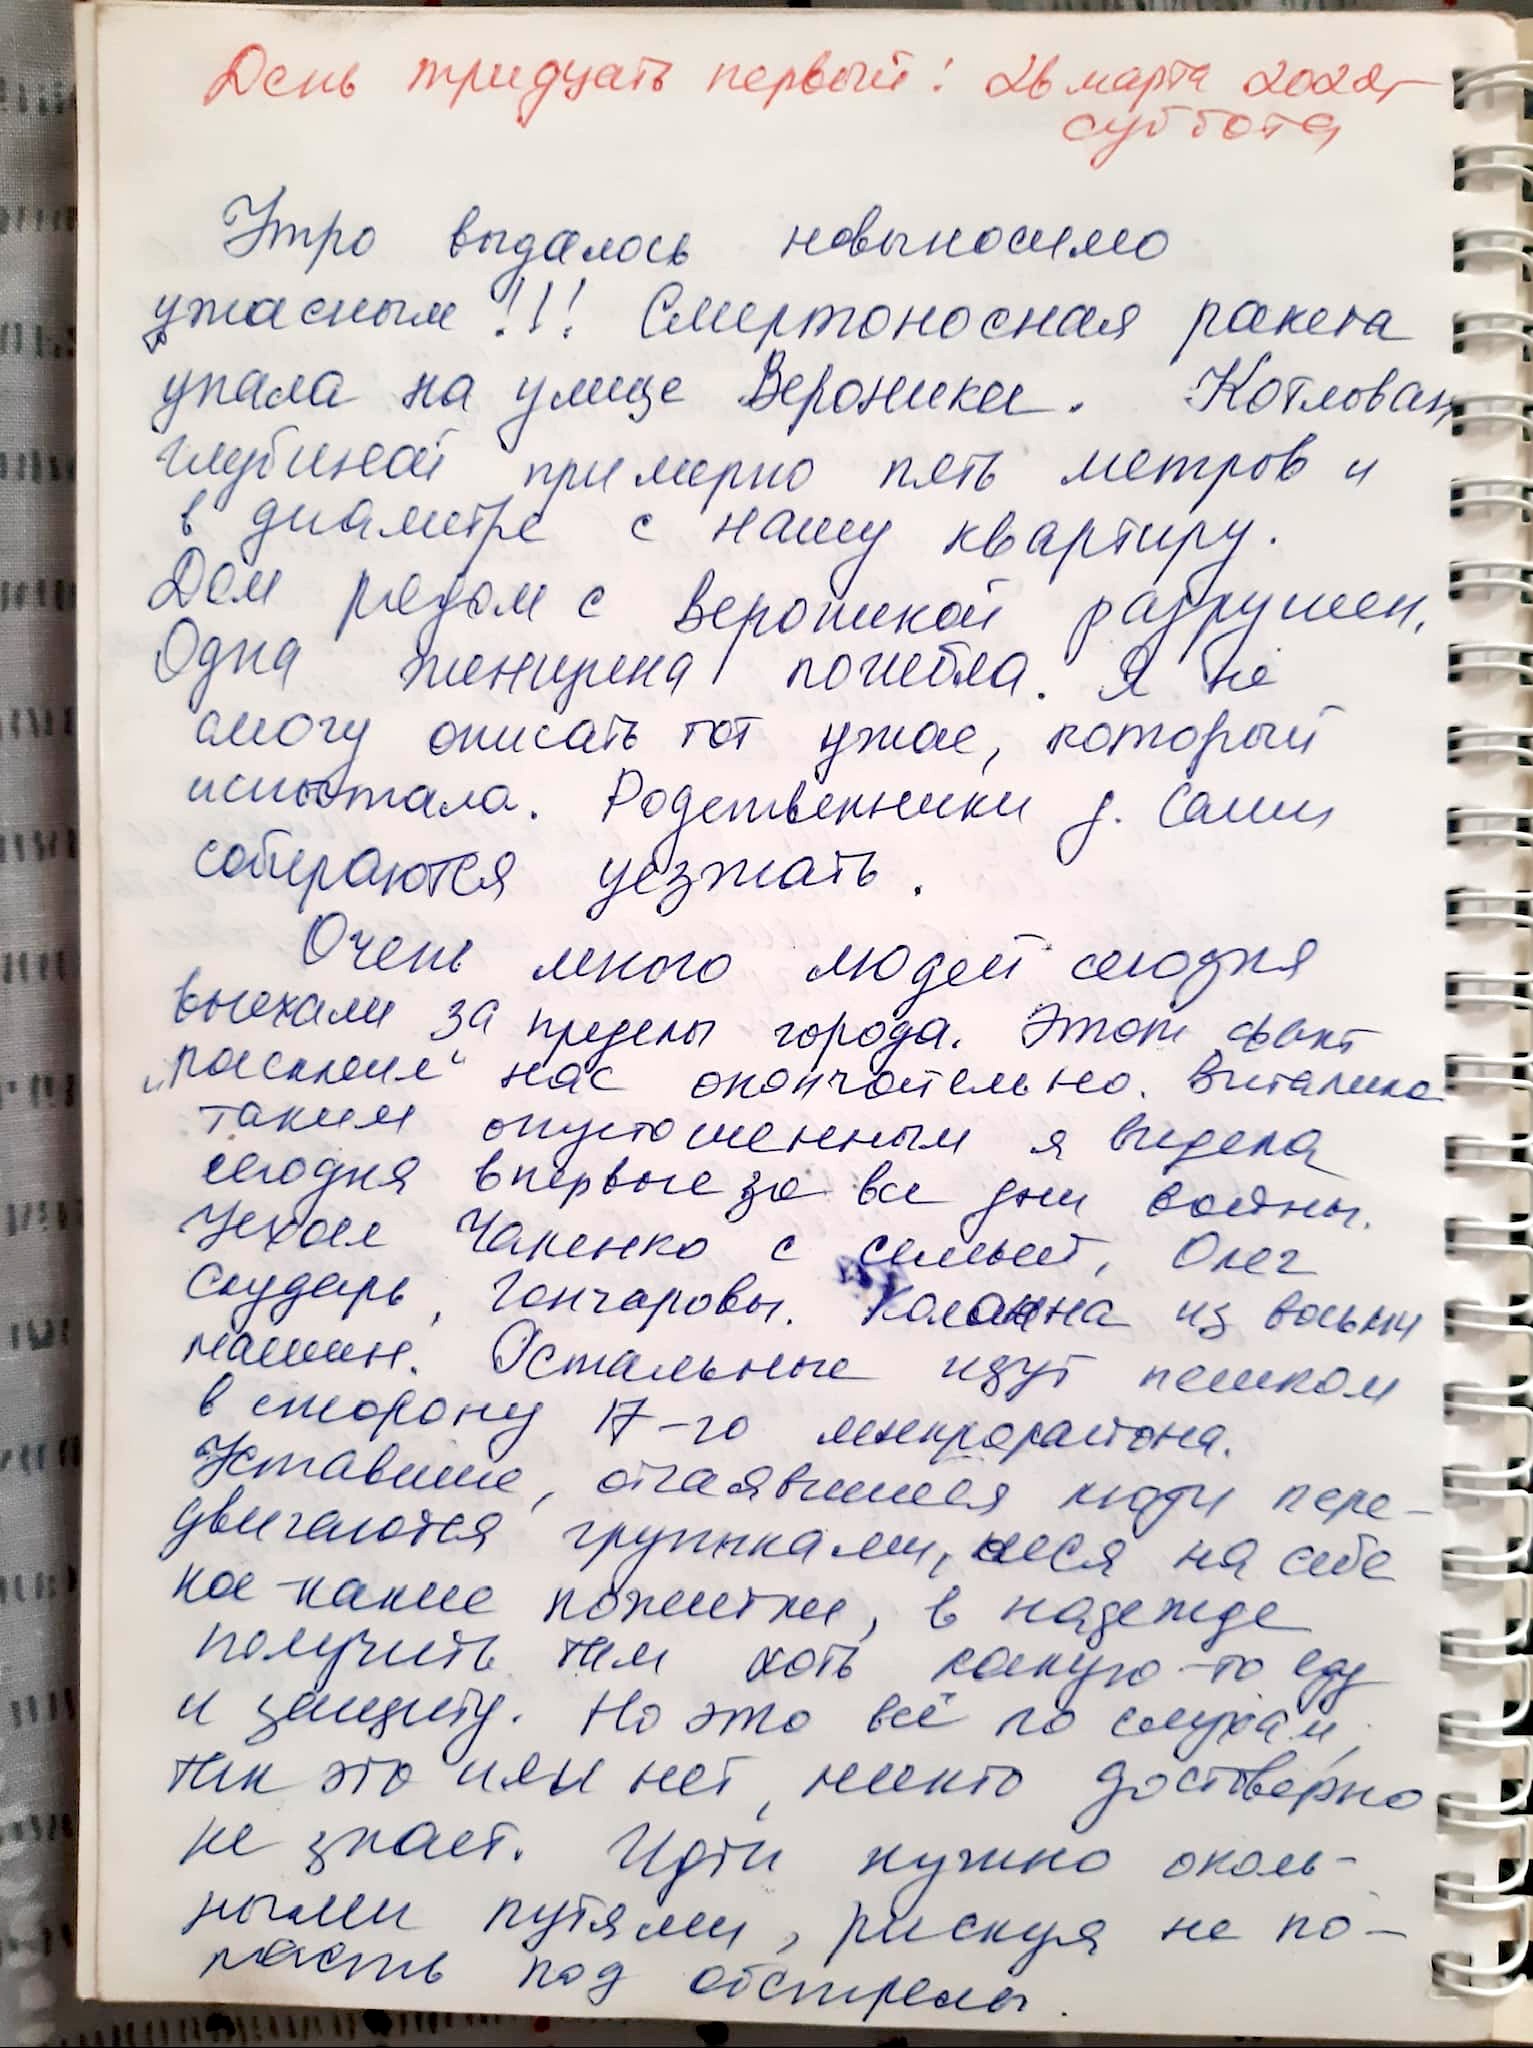 День тридцать первый: 26 марта 2022г
суббота
Утро выдалось невыносимо
ужасным!!! Смертоносная ракета
упала на улице Вероники. Котлован
глубиной примерно пять метров и
в диаметре с нашу квартиру.
Дом рядом с Вероникой разрушен.
Одна женщина погибла. Я не
смогу описать тот ужас, который
испытала. Родственники д. Саши
собираются уезжать.
Очень много людей сегодня
выехали за пределы города. Этот факт
„расклеил“ нас окончательно. Виталика
таким опустошенным я видела
сегодня впервые за все дни войны.
Уехал Чапенко с семьей, Олег
Скударь, Гончаровы. Колонна из восьми
машин. Остальные идут пешком
в сторону 17-го микрорайона.
Уставшие, отчаявшиеся люди пере-
двигаются группками, неся на себе
кое-какие пожитки, в надежде
получить там хоть какую-то еду
и защиту. Но это всё по слухам,
так это или нет, никто достоверно
не знает. Идти нужно околь-
ными путями, рискуя не по-
пасть под обстрелы.